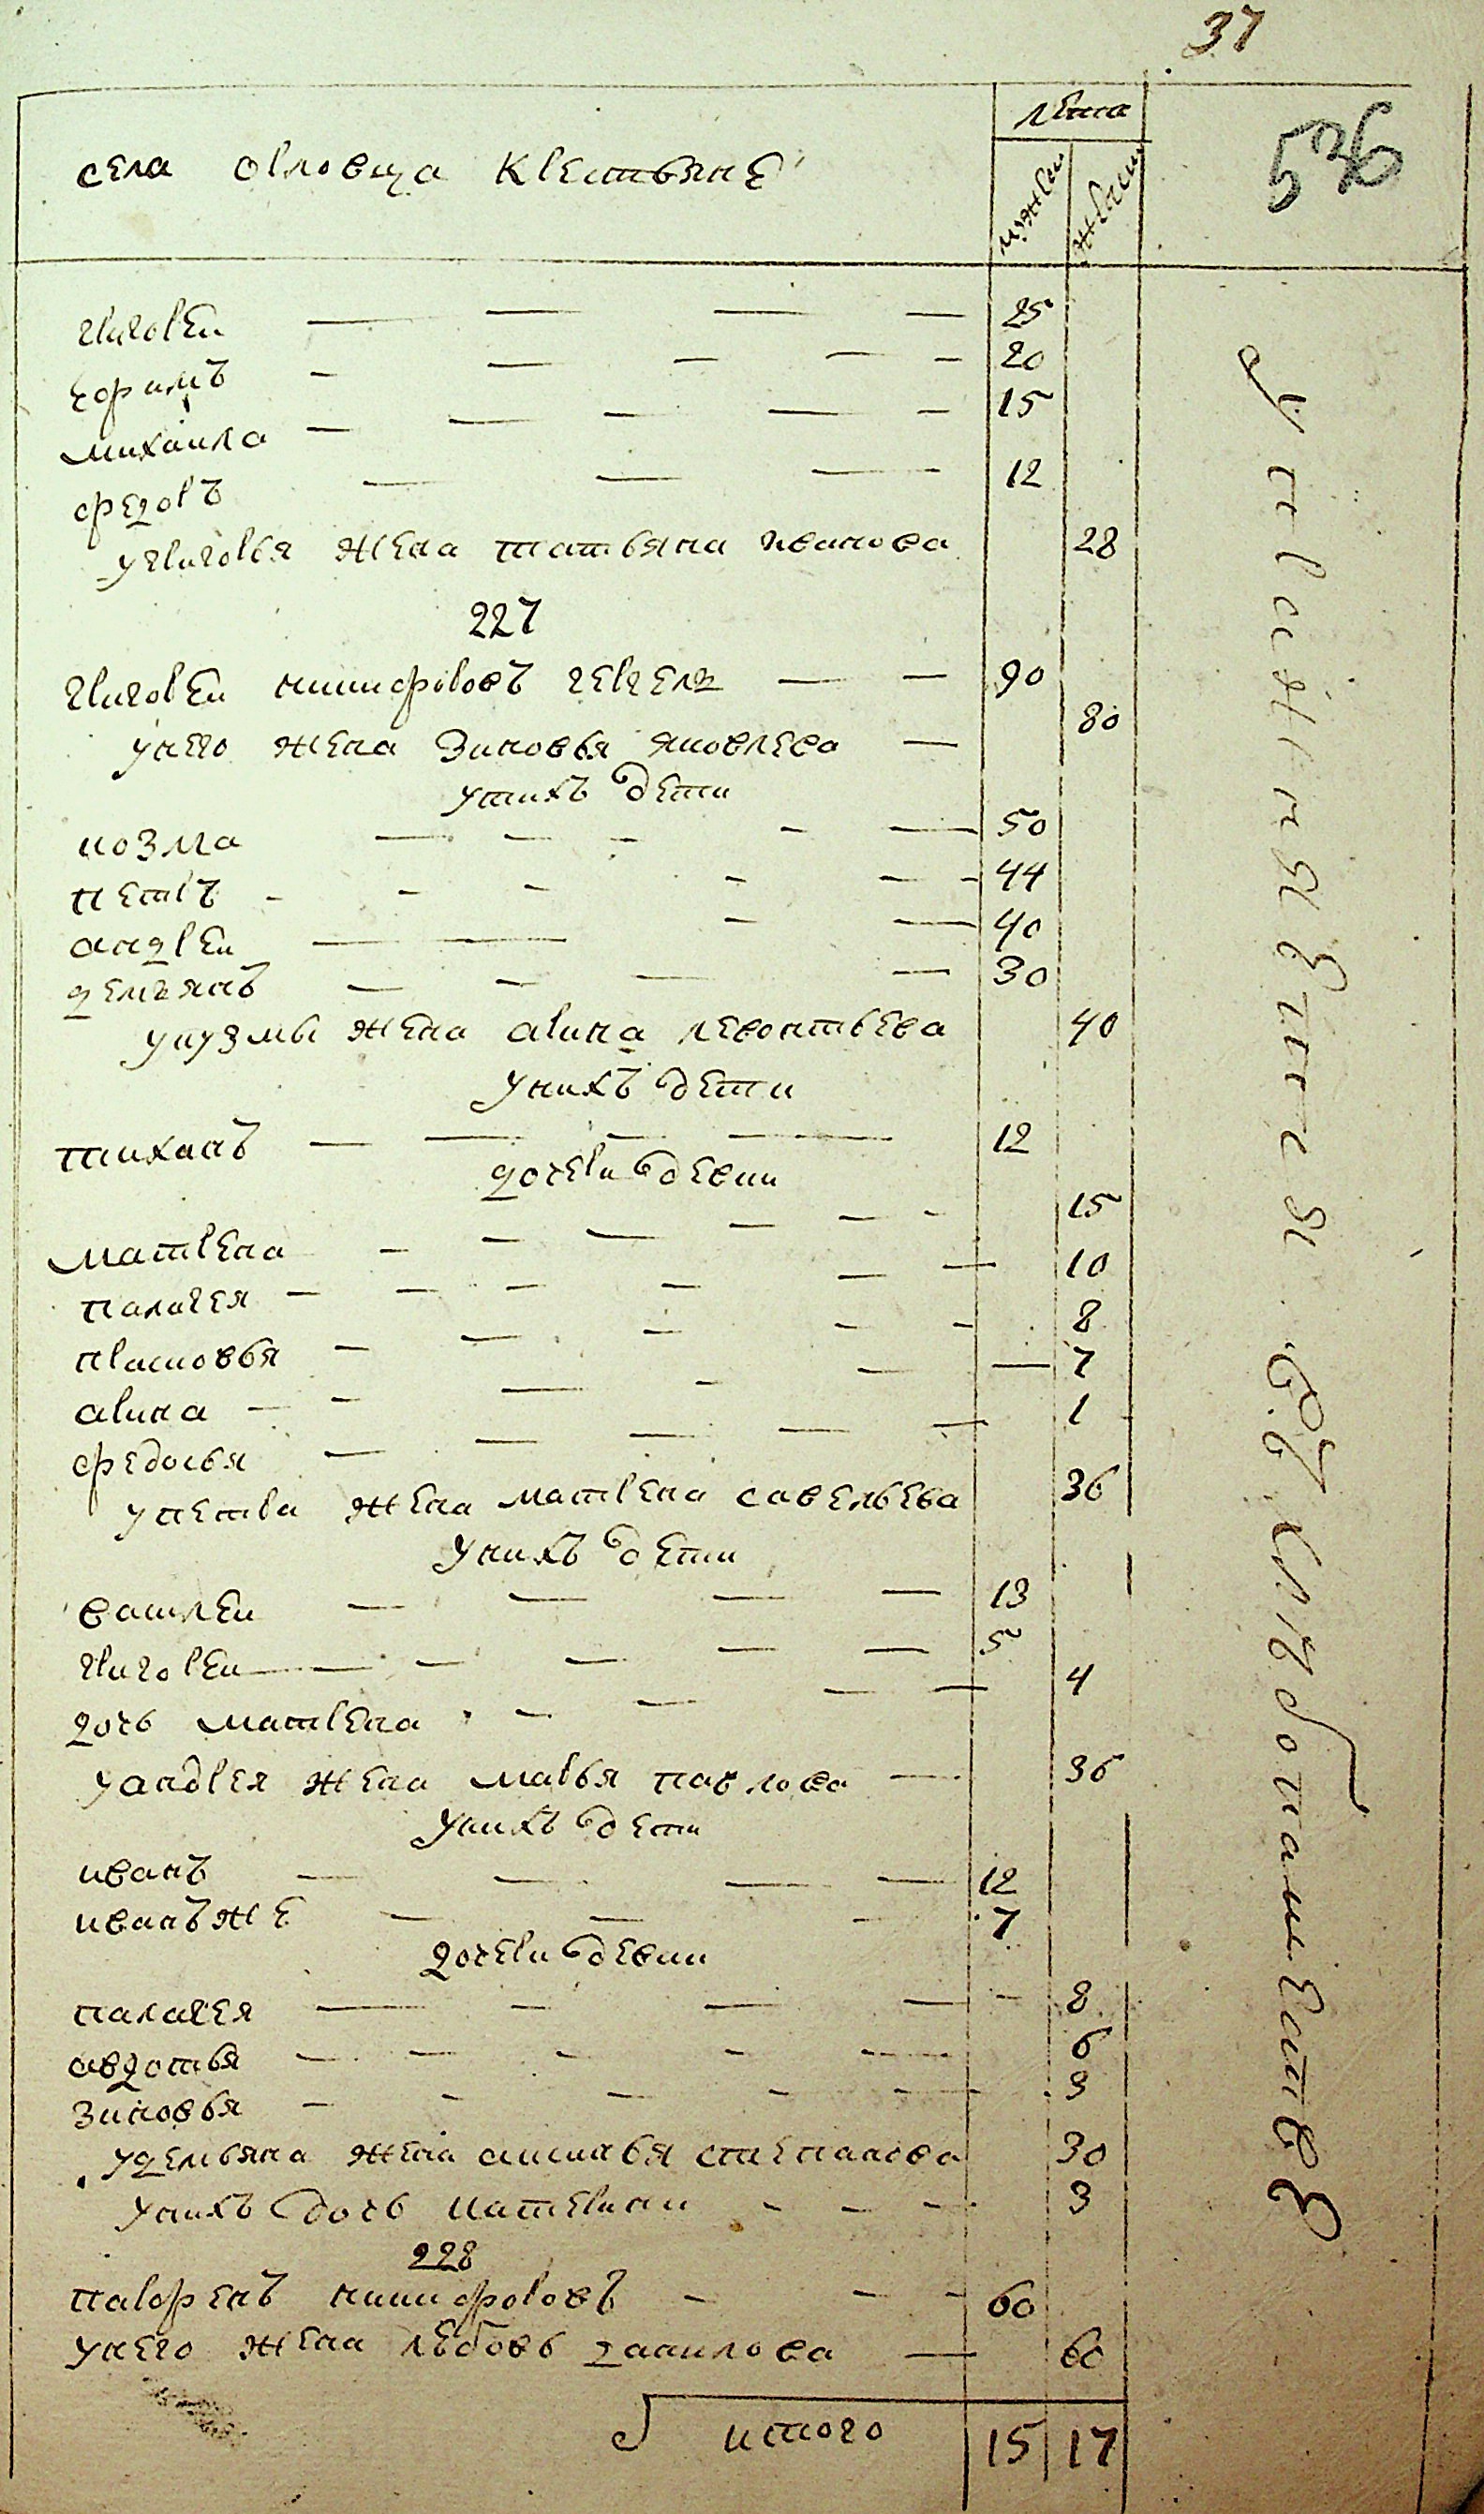 37
536
села Орловца крестьяне
лета
мужеи
женщ
григореи 25
ефимъ 20
михаила 15
федоръ 12
угригорья жена татьяна иванова 28
227
григореи никифоровъ 90
унего жена зиновья яковлева 80
унихъ дети
козма 50
петръ 44
андреи 40
демъянъ 30
укузмы жена арина левонтьева 40
унихъ дети
тиханъ 12
дочери девки
матрена 15
палагея 10
прасковья 8
арина 7
федосья 1
упетра жена матрена савельева 36
унихъ дети
василеи 13
григореи 5
дочь матрена 4
уандрея жена марья павлова 36
унихъ дети
иванъ 12
иванъ же 7
дочери девки
палагея 8
авдотья 6
зиновья 3
удемьяна жена аксинья степанова 30
унихъ дочь катерина 3
228
парфенъ никифоровъ 60
унего жена любовь данилова 60
итого 15 17